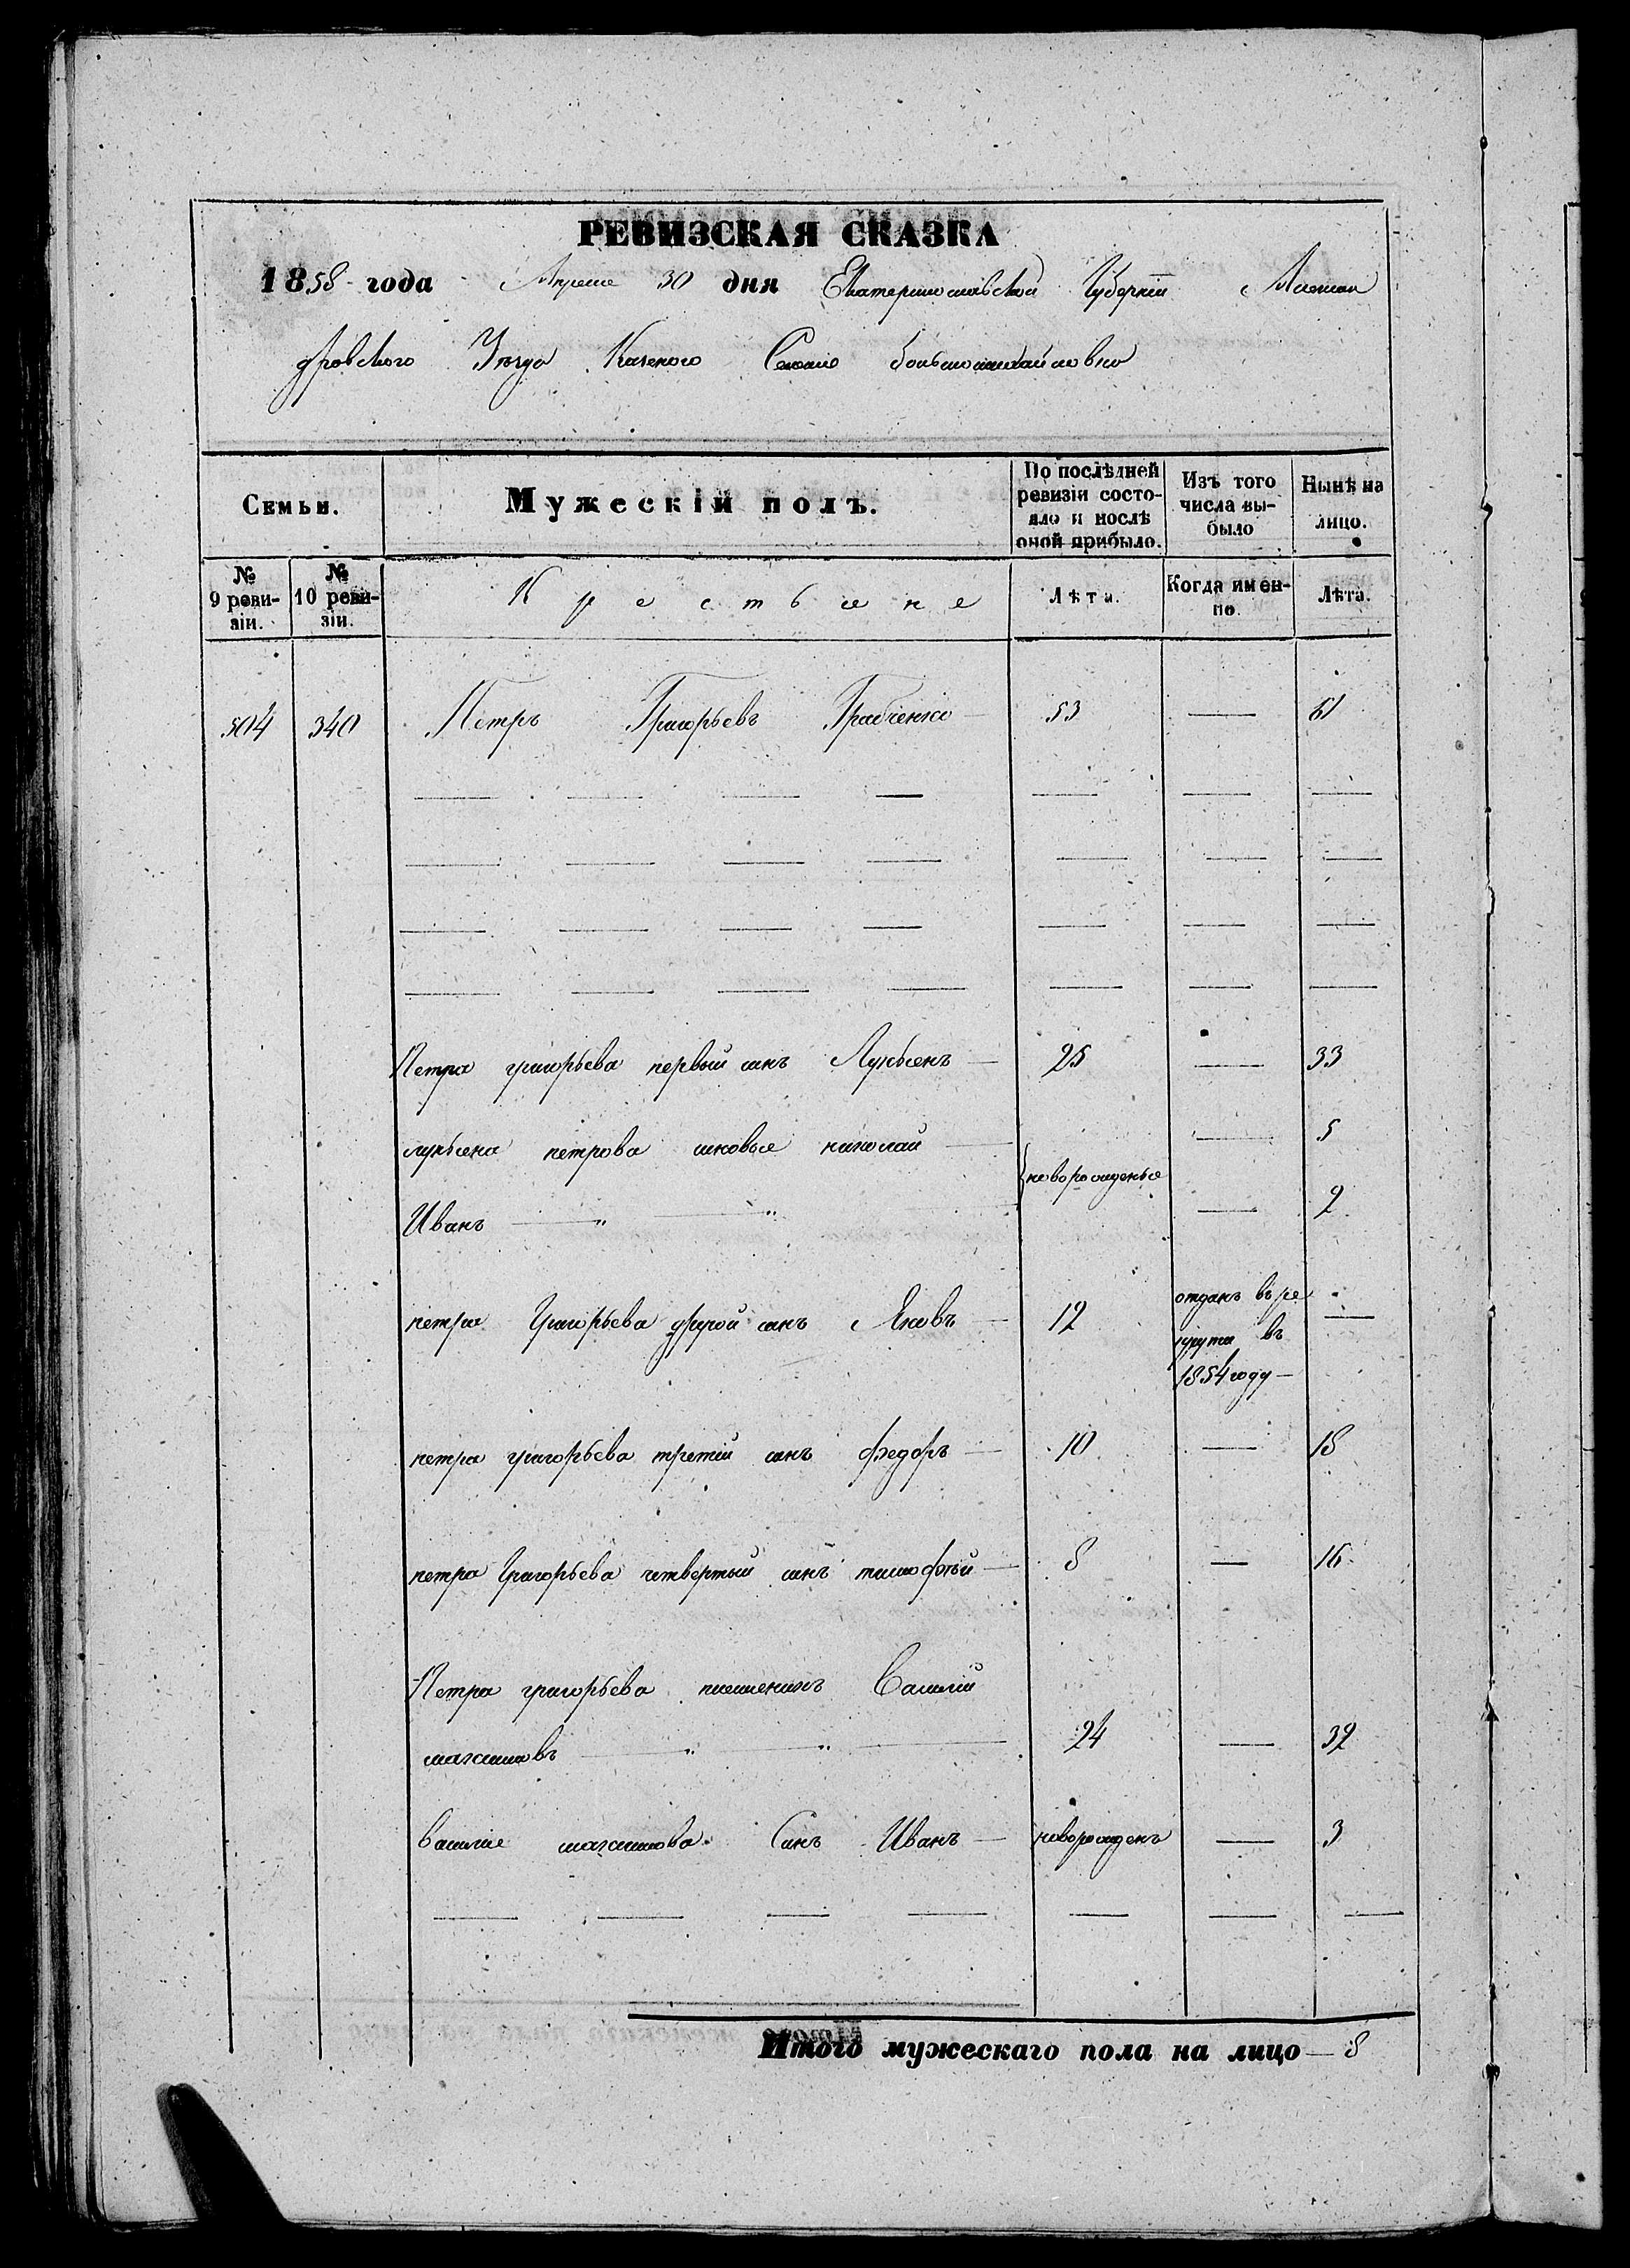 РЕВИЗСКАЯ СКАЗКА
1858 года Апреля 30 дня Екатеринославской Губернии Алексан
дровского Уезда Казеного Селения большомихайловки
Семьи. Мужескій полъ. По послѣдней ревизіи состояло и послѣ оной прибыло. Изъ того числа выбыло Нынѣ на лицо.
№ 9 ревизіи. № 10 ревизіи. Крестьяне Лѣта. Когда именно. Лѣта.
504 340 Петръ Григорьевъ Грабченко 53 — 61
Петра григорьева первый синъ Лукьянъ — 25 — 33
лукьяна петрова синовья николай — — 5
новорожденые
Иванъ — " — " — 2
петра Григорьева другой синъ Яковъ — 12 отданъ въ ре —
круты въ
1854 году —
петра григорьева третий синъ федоръ — 10 — 18
петра Григорьева четвертый синъ тимофѣй — 8 — 16
Петра григорьева племеникъ Василий
максимовъ — " — " — 24 — 32
василия максимова Синъ Иванъ — новорожденъ — 3
Итого мужескаго пола на лицо — 8